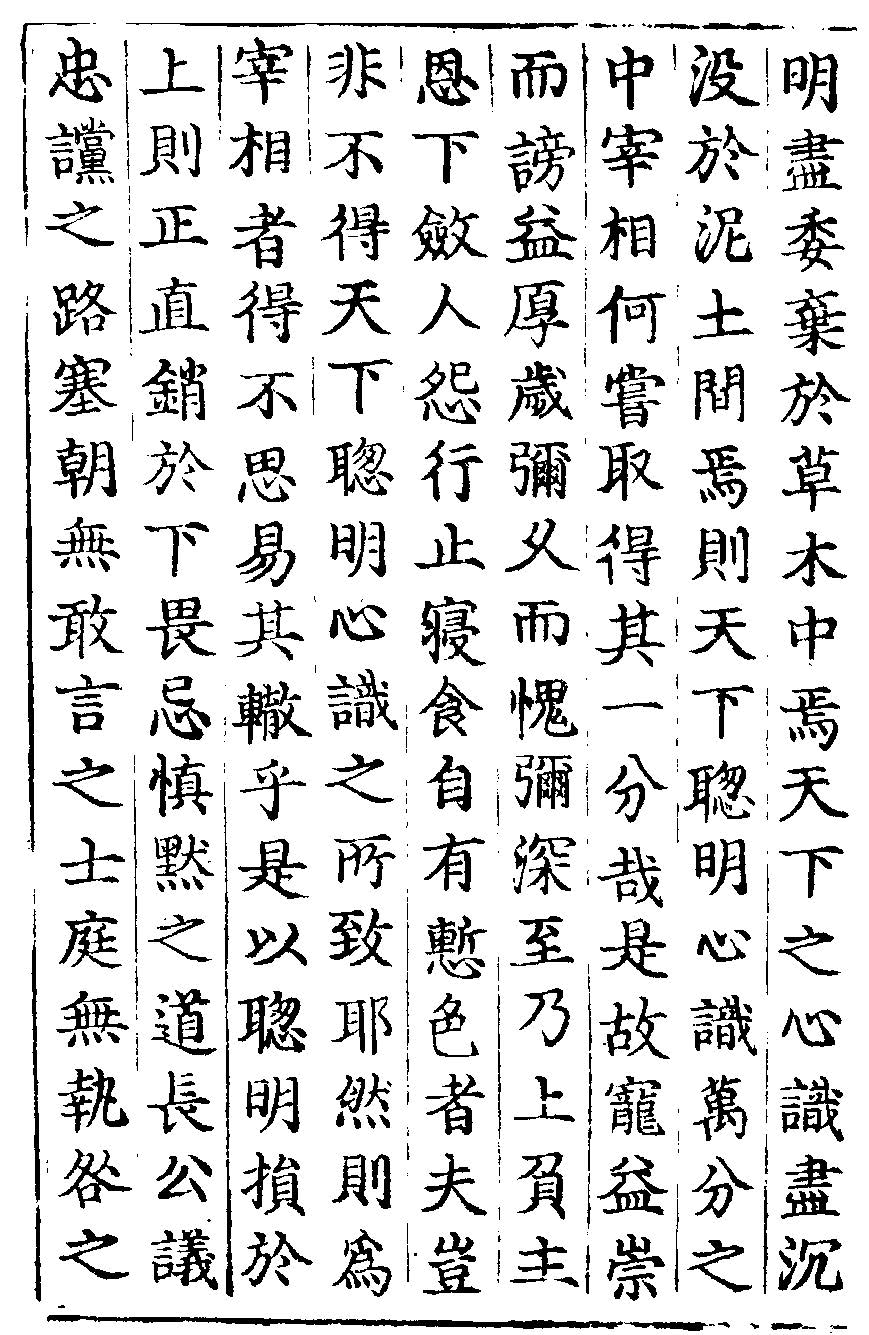 明盡委棄於草木中焉天下之心識盡沉
没於泥土間焉則天下聦明心識萬分之
中宰相何嘗取得其一分哉是故寵益崇
而謗益厚歲彌久而愧彌深至乃上負主
恩下斂人怨行止寢食自有慙色者夫豈
非不得天下聦明心識之所致耶然則爲
宰相者得不思易其轍乎是以聦明損於
上則正直銷於下畏忌慎默之道長公議
忠讜之路塞朝無敢言之士庭無執咎之